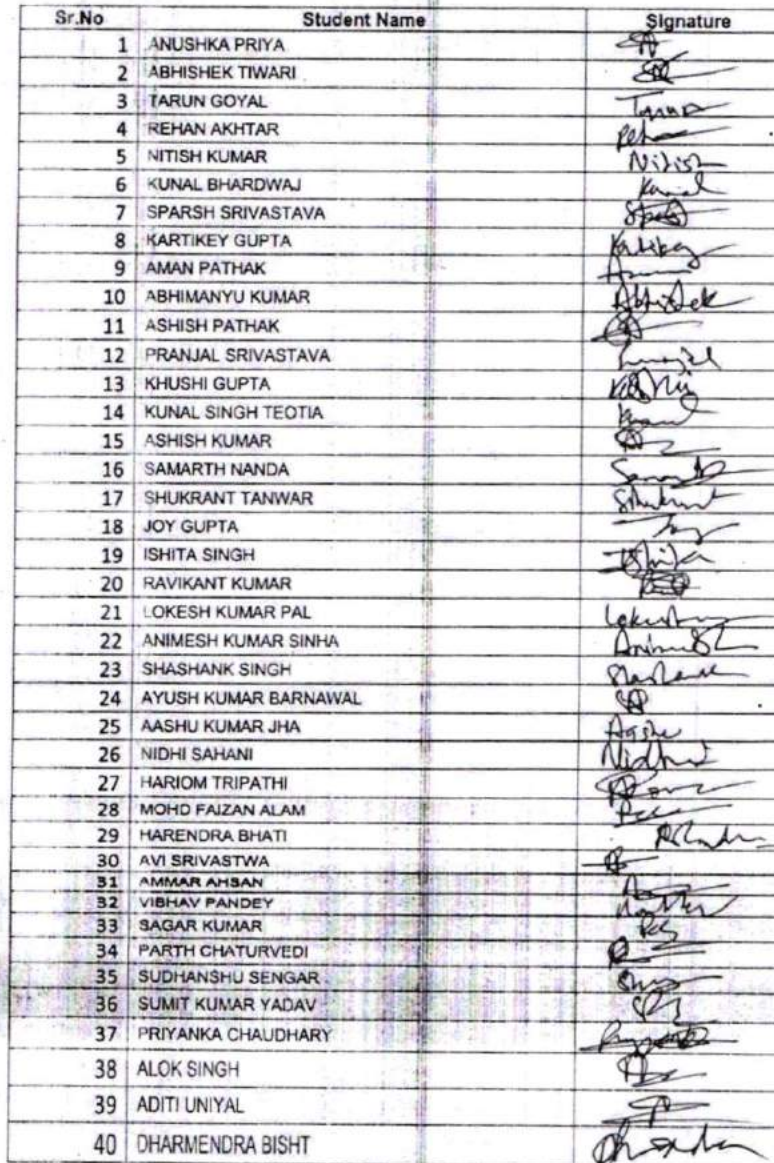 Sr.No Student Name Signature
1 ANUSHKA PRIYA
2 ABHISHEK TIWARI
3 TARUN GOYAL Tarun
4 REHAN AKHTAR
5 NITISH KUMAR Nitish
6 KUNAL BHARDWAJ Kunal
7 SPARSH SRIVASTAVA
8 KARTIKEY GUPTA Kartikey
9 AMAN PATHAK
10 ABHIMANYU KUMAR Abhishek
11 ASHISH PATHAK
12 PRANJAL SRIVASTAVA
13 KHUSHI GUPTA
14 KUNAL SINGH TEOTIA
15 ASHISH KUMAR
16 SAMARTH NANDA
17 SHUKRANT TANWAR Shukrant
18 JOY GUPTA
19 ISHITA SINGH Ishita
20 RAVIKANT KUMAR
21 LOKESH KUMAR PAL
22 ANIMESH KUMAR SINHA
23 SHASHANK SINGH
24 AYUSH KUMAR BARNAWAL
25 AASHU KUMAR JHA Aashu
26 NIDHI SAHANI Nidhi
27 HARIOM TRIPATHI
28 MOHD FAIZAN ALAM
29 HARENDRA BHATI
30 AVI SRIVASTWA
31 AMMAR AHSAN
32 VIBHAV PANDEY
33 SAGAR KUMAR
34 PARTH CHATURVEDI
35 SUDHANSHU SENGAR
36 SUMIT KUMAR YADAV
37 PRIYANKA CHAUDHARY
38 ALOK SINGH
39 ADITI UNIYAL
40 DHARMENDRA BISHT